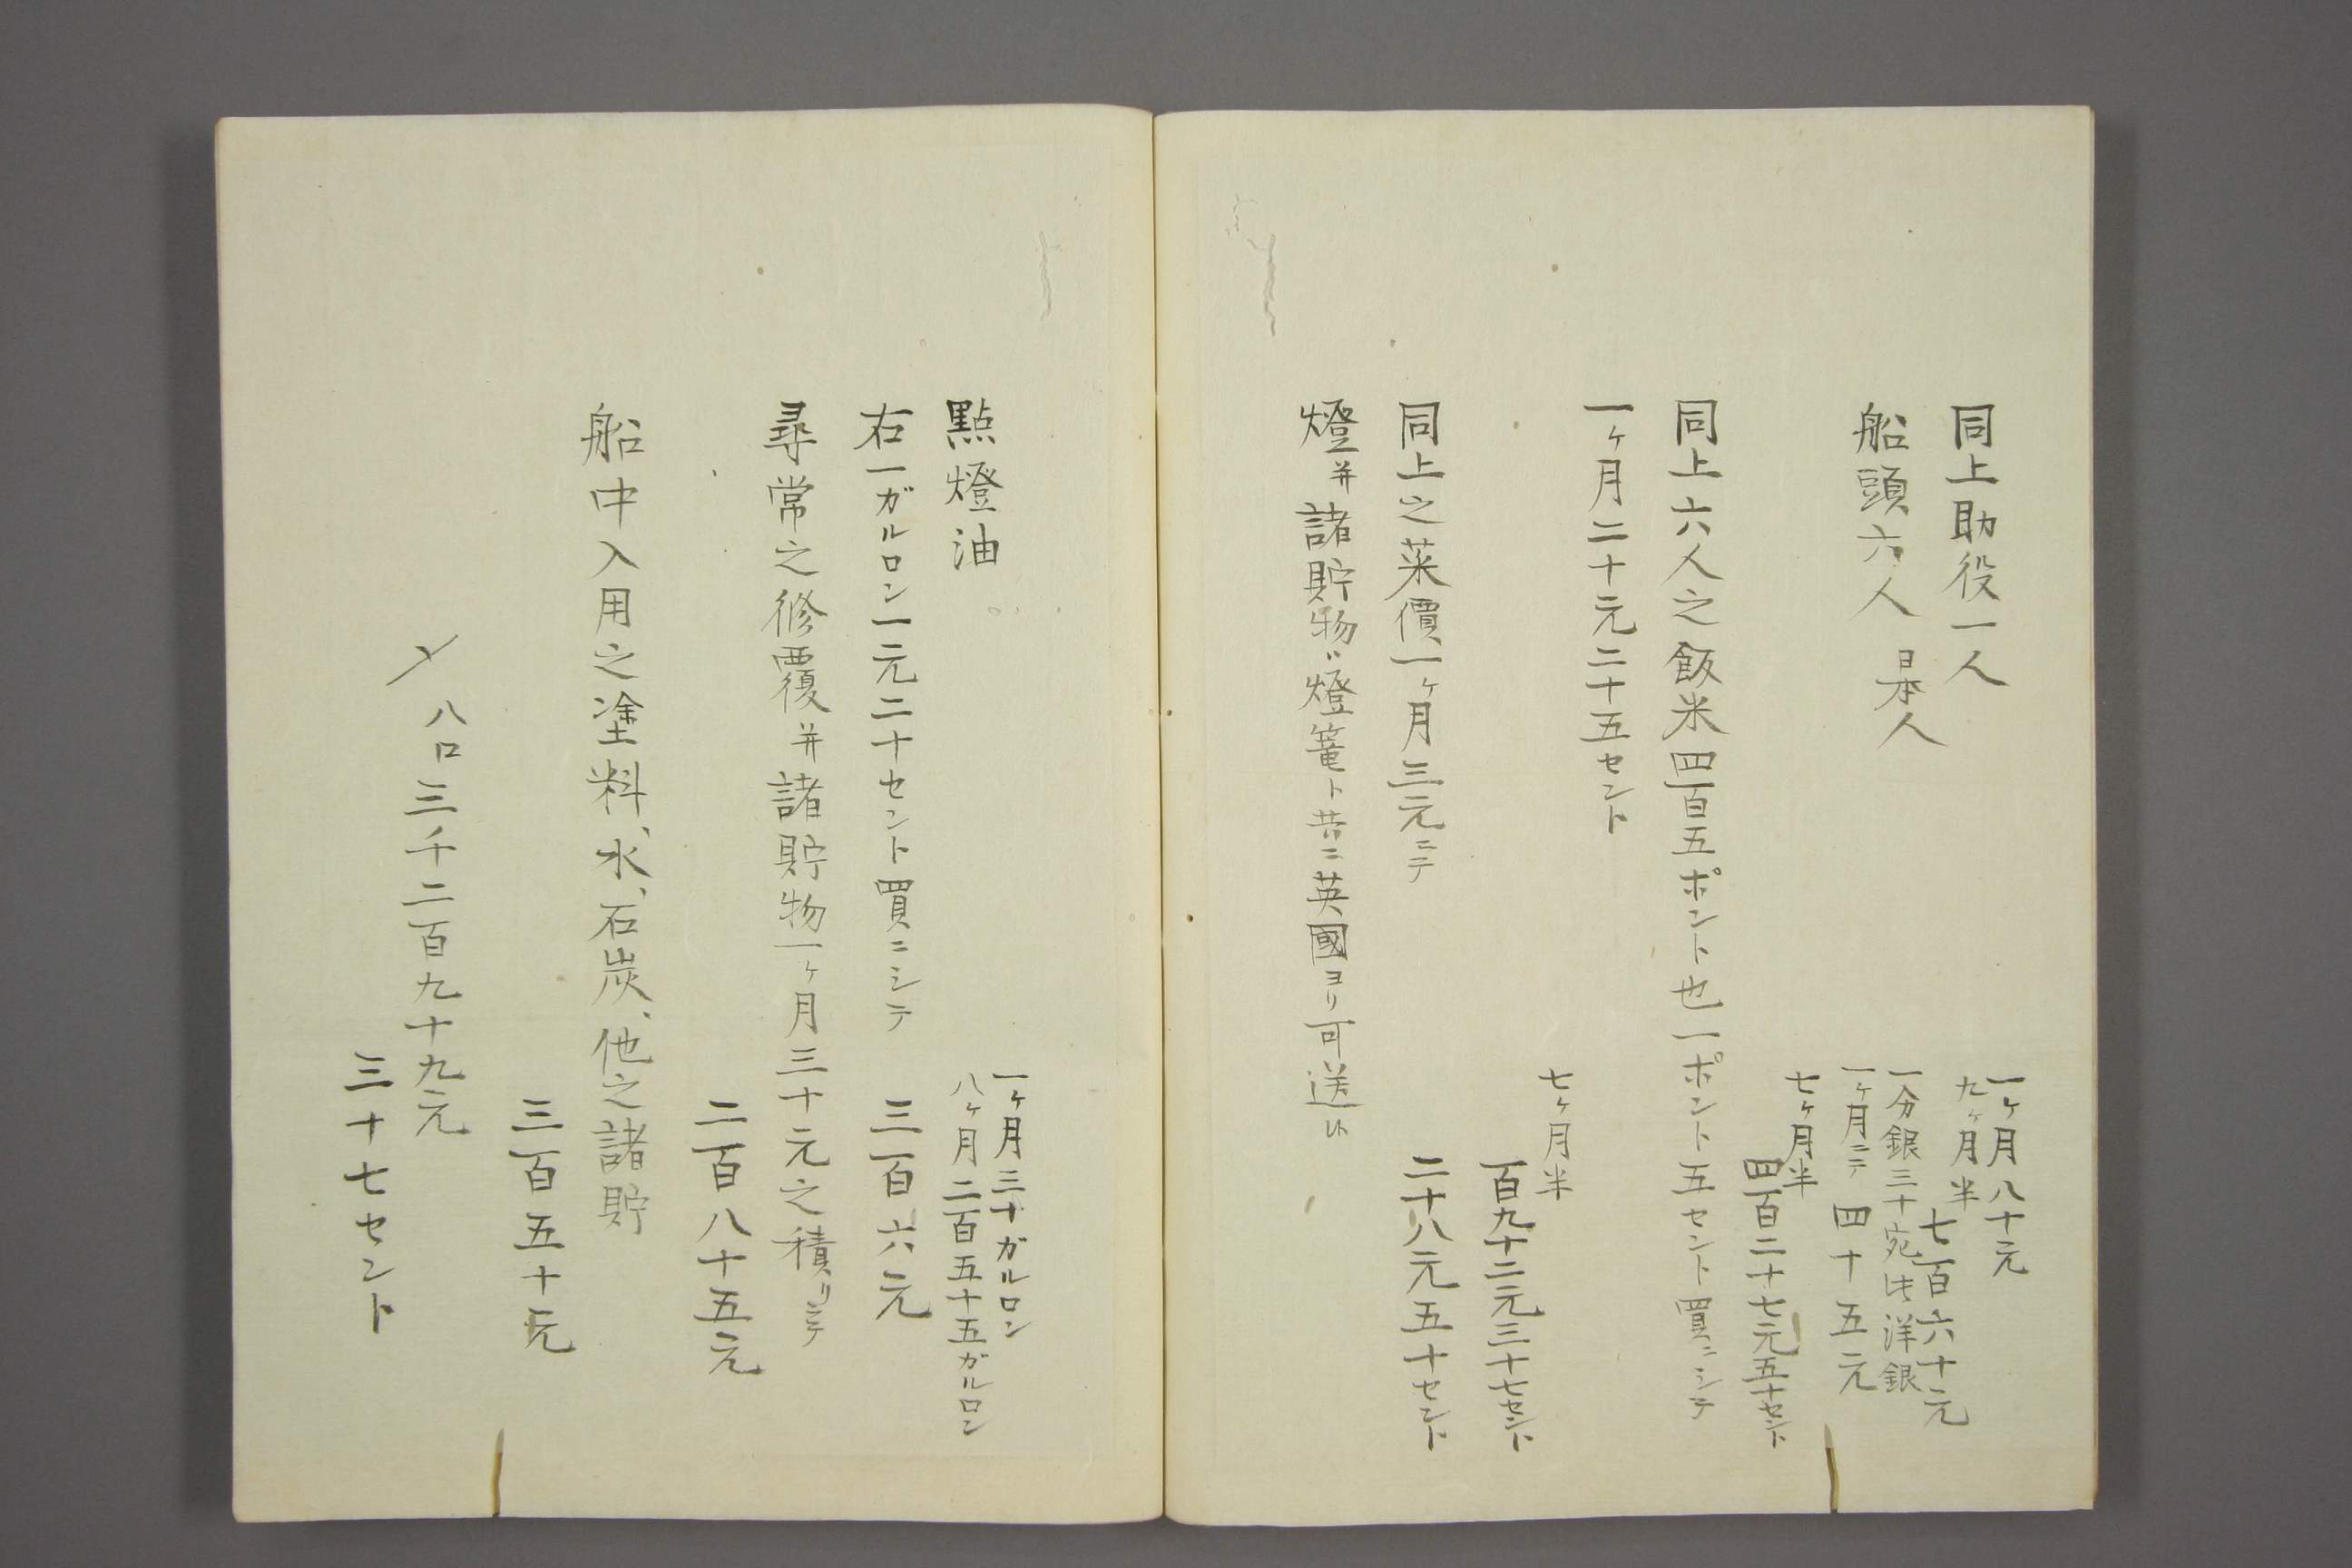 同上助役一人
一ヶ月八十元
九ヶ月半
七百六十元
船頭六人 日本人
一分銀三十宛此洋銀
一ヶ月ニテ 四十五元
七ヶ月半
四百二十七元五十セント
同上六人之飯米四百五ポント也一ポント五セント買ニシテ
一ヶ月二十元二十五セント
七ヶ月半
百九十二元三十七セント
同上之菜價一ヶ月三元ニテ
二十八元五十セント
燈并諸貯物ハ燈篭ト共ニ英國ヨリ可送候
點燈油
一ヶ月三十ガルロン
八ヶ月二百五十五ガルロン
右一ガルロン一元二十セント買ニシテ
三百六元
尋常之修覆并諸貯物一ヶ月三十元之積リニテ
二百八十五元
船中入用之塗料、水、石炭、他之諸貯
三百五十元
〆 八口三千二百九十九元
三十七セント